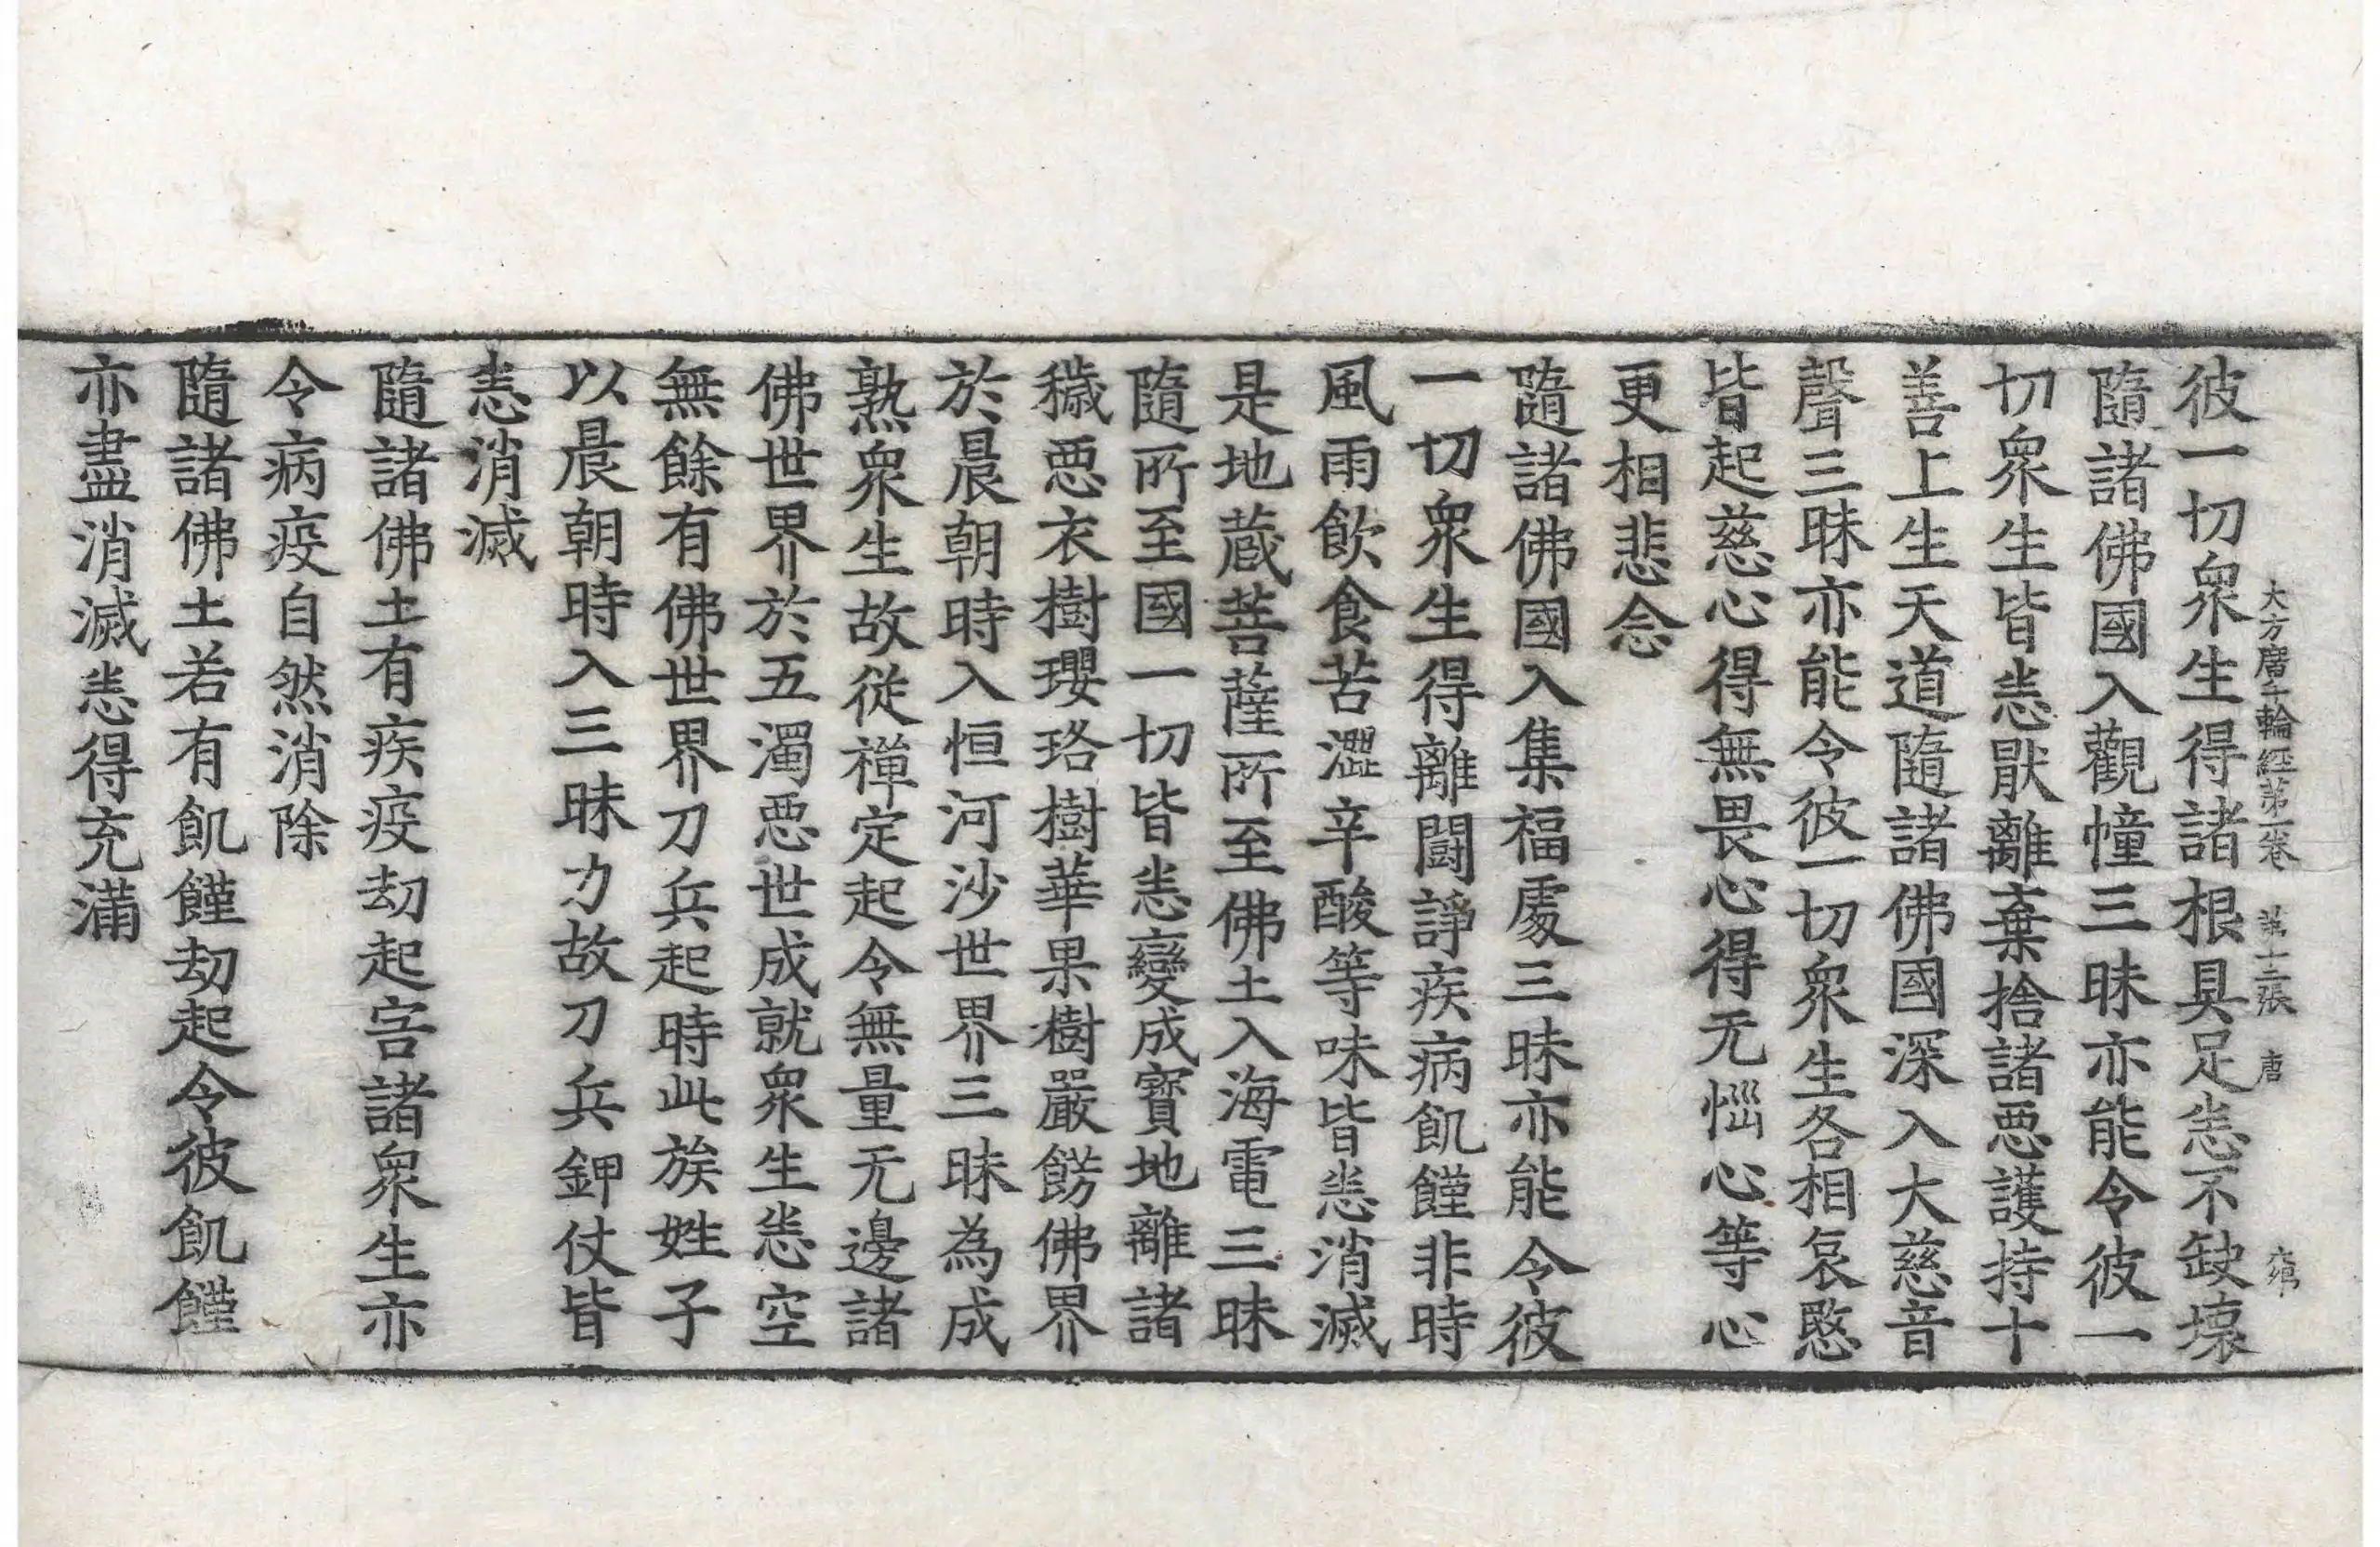 大方廣十輪經第一卷　第十二張　唐
彼一切衆生得諸根具足悉不缺壞
隨諸佛國入觀幢三昧亦能令彼一
切衆生皆悉厭離棄捨諸惡護持十
善上生天道隨諸佛國深入大慈音
聲三昧亦能令彼一切衆生各相哀愍
皆起慈心得無畏心得无惱心等心
更相悲念
隨諸佛國入集福處三昧亦能令彼
一切衆生得離鬪諍疾病飢饉非時
風雨飲食苦澀辛酸等味皆悉消滅
是地蔵菩薩所至佛土入海電三昧
隨所至國一切皆悉變成寶地離諸
穢惡衣樹瓔珞樹華果樹嚴餝佛界
於晨朝時入恒河沙世界三昧為成
熟衆生故從禅定起令無量无邊諸
佛世界於五濁惡世成就衆生悉空
無餘有佛世界刀兵起時此族姓子
以晨朝時入三昧力故刀兵鉀仗皆
悉消滅
隨諸佛土有疾疫劫起害諸衆生亦
令病疫自然消除
隨諸佛土若有飢饉劫起令彼飢饉
亦盡消滅悉得充滿